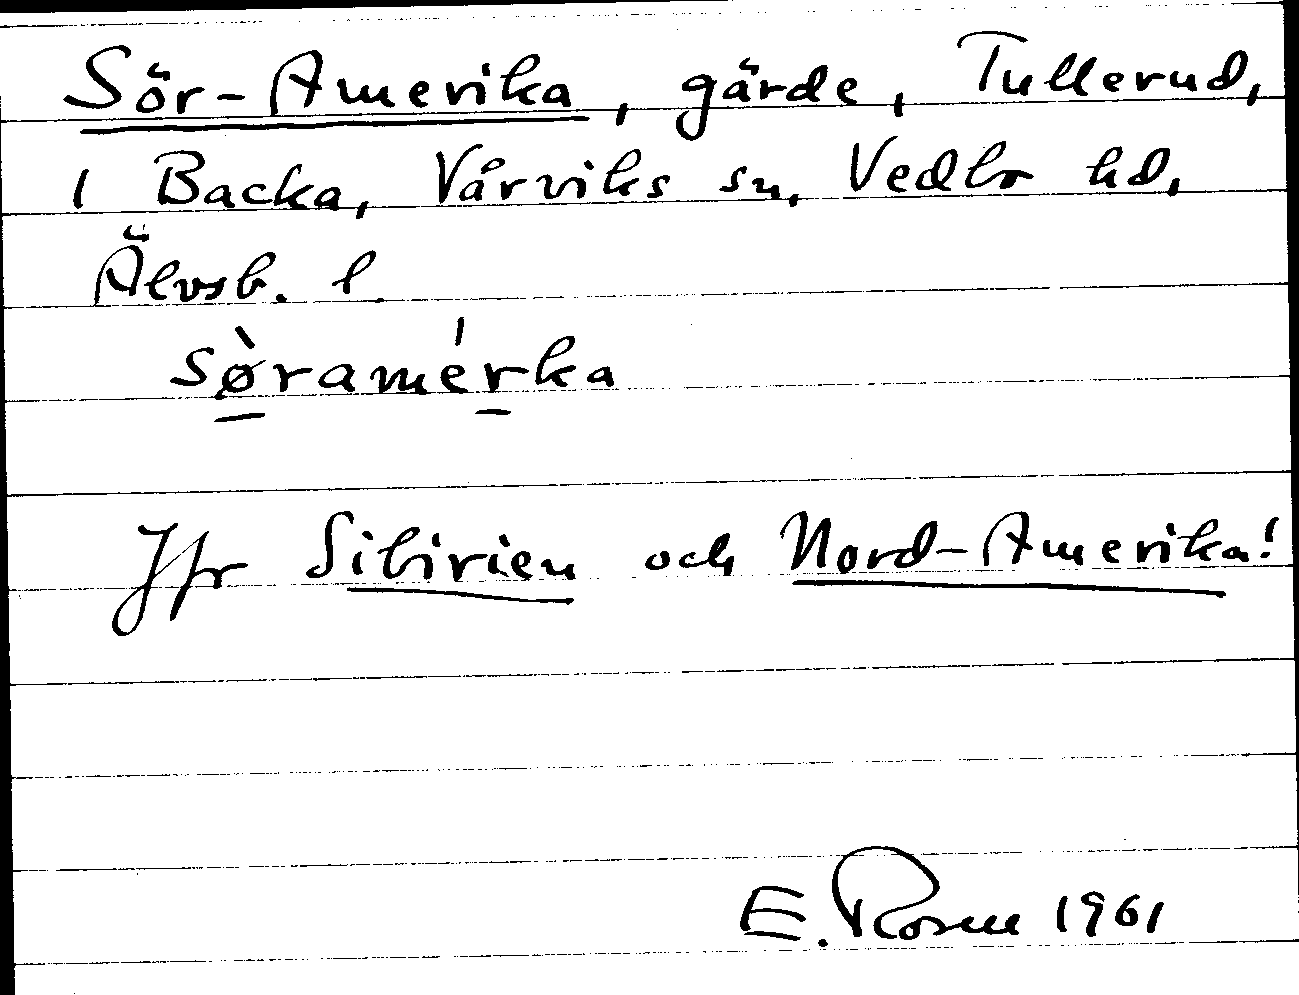 Sör-Amerika, gärde, Tullerud,
1 Backa, Vårviks sn, Vedbo hd,
Älvsb. l
sø̀ramérka
Jfr Sibirien och Nord-Amerika!
E. Rosen 1961